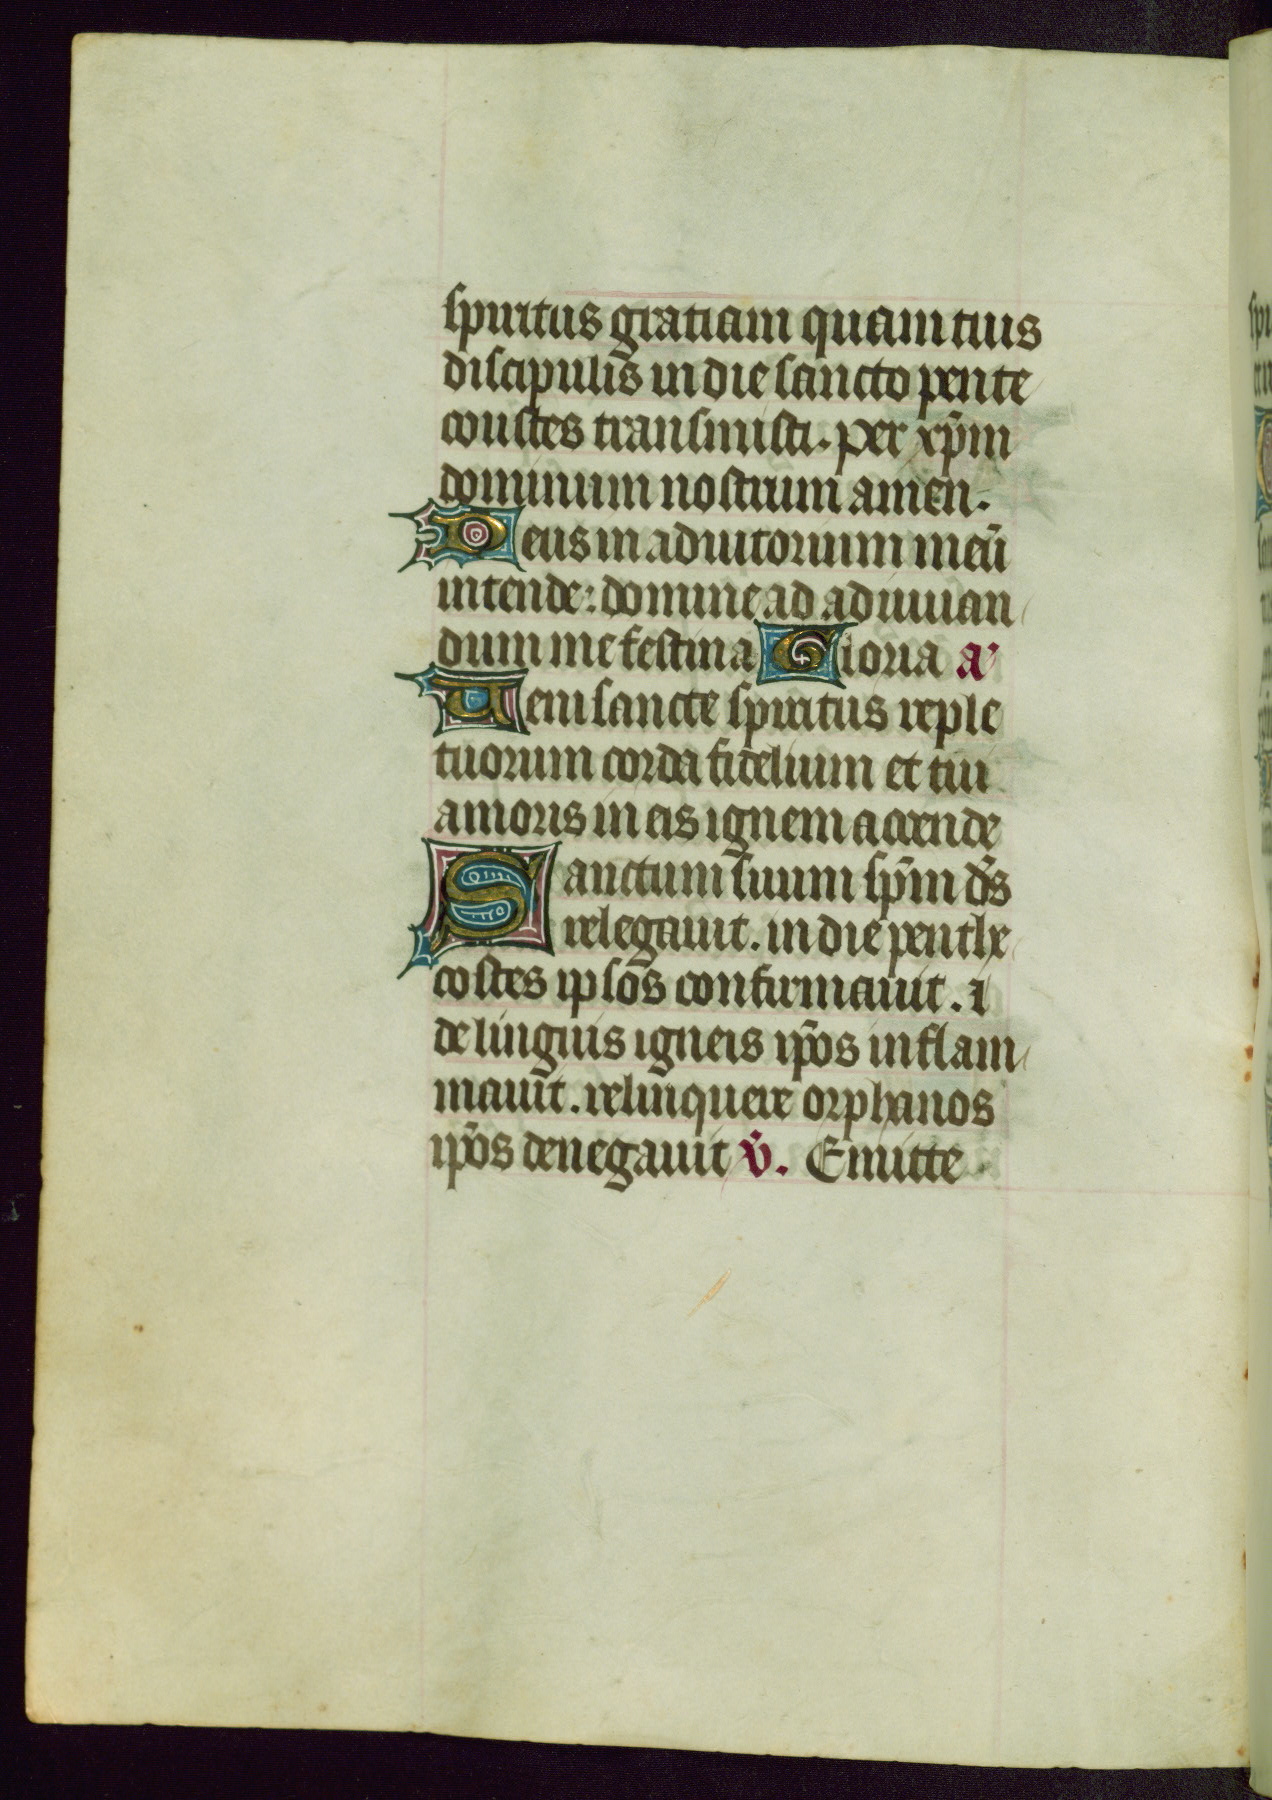 spiritus gratiam quam tuis
discipulis in die sancto pente
coustes transmisti. per xp̄m
dominum nostrum amen.
Deus in adiutorium meū
intende: domine ad adiuuan
dum me festina Gloria a'
Ueni sancte spiritus reple
tuorum corda fidelium et tui
amoris in eis ignem accende
Sanctum suum sp̄m dn̄s
relegauit. in die penthe
costes ipsos confirmauit. i
de linguis igneis ip̄os inflam
mauit. relinquere orphanos
ip̄os denegauit v̄. Emitte